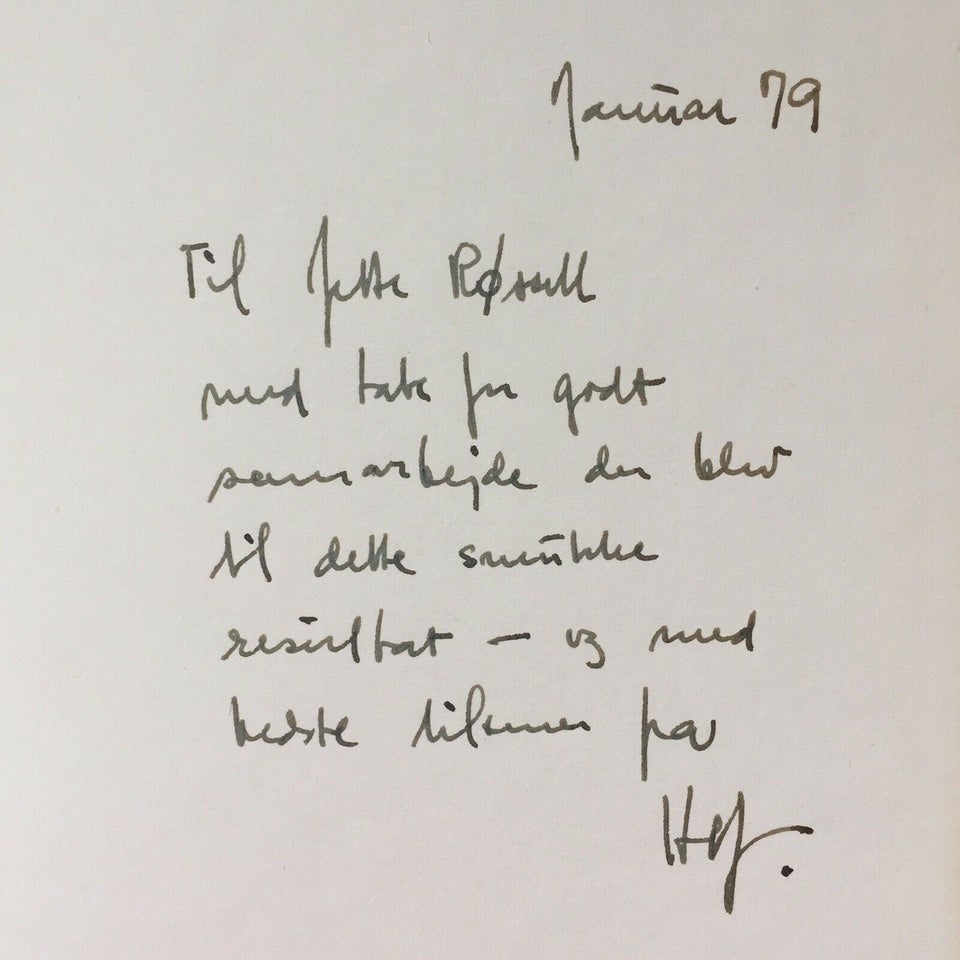 Januar 79
Til Jette Røssell
med tak for godt
samarbejde der blev
til dette smukke
resultat – og med
bedste hilsener fra